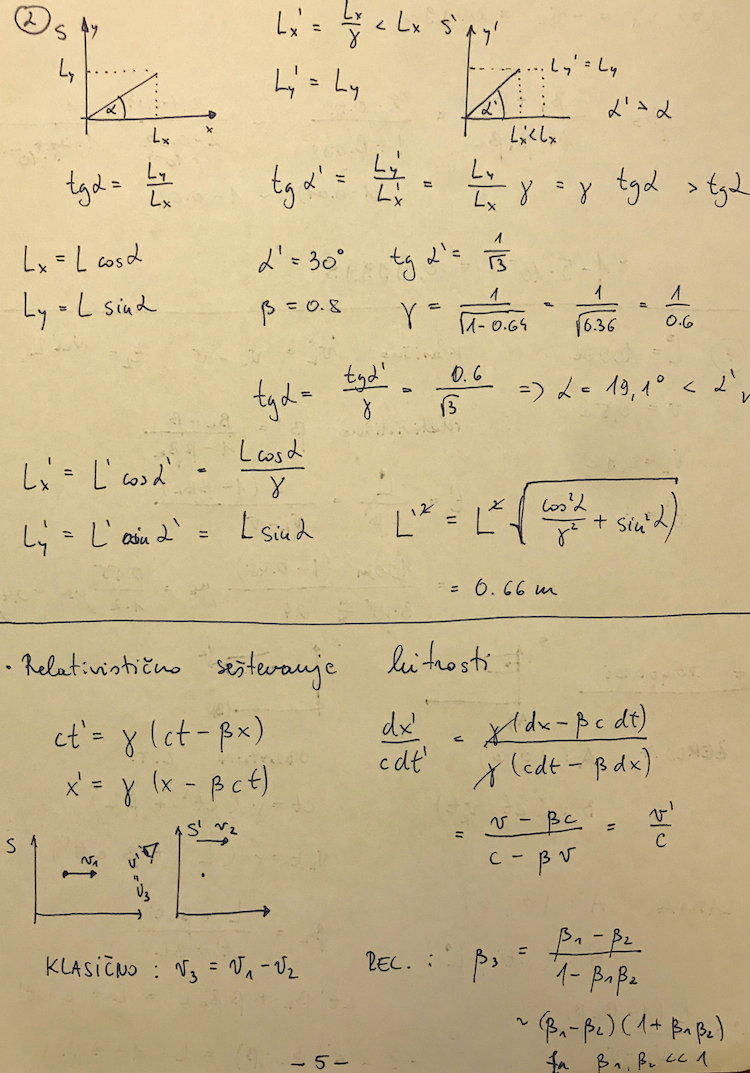 ②
S y
L_x' = L_x/γ < L_x S'
y'
L_y
L_y' = L_y
L_y' = L_y
α
α'
α' > α
L_x
x
L_x' < L_x
tgα = L_y/L_x
tg α' = L_y'/L_x' = L_y/L_x γ = γ tgα > tgα
L_x = L cosα
α' = 30°
tg α' = 1/√3
L_y = L sinα
β = 0.8
γ = 1/√(1-0.64) = 1/√0.36 = 1/0.6
tgα = tgα'/γ = 0.6/√3 => α = 19,1° < α' ✓
L_x' = L' cosα' = L cosα/γ
L_y' = L' sin α' = L sinα
L' = L √(cos²α/γ² + sin²α)
= 0.66 m
· Relativistično seštevanje hitrosti
ct' = γ (ct - βx)
dx'/cdt' = γ(dx - βc dt)/γ(cdt - βdx)
x' = γ (x - βct)
= (v - βc)/(c - βv) = v'/c
S
v₁
v' = v₃
S' v₂
KLASIČNO : v₃ = v₁ - v₂
REL. : β₃ = (β₁ - β₂)/(1 - β₁β₂)
~ (β₁-β₂)(1 + β₁β₂)
for β₁, β₂ << 1
- 5 -